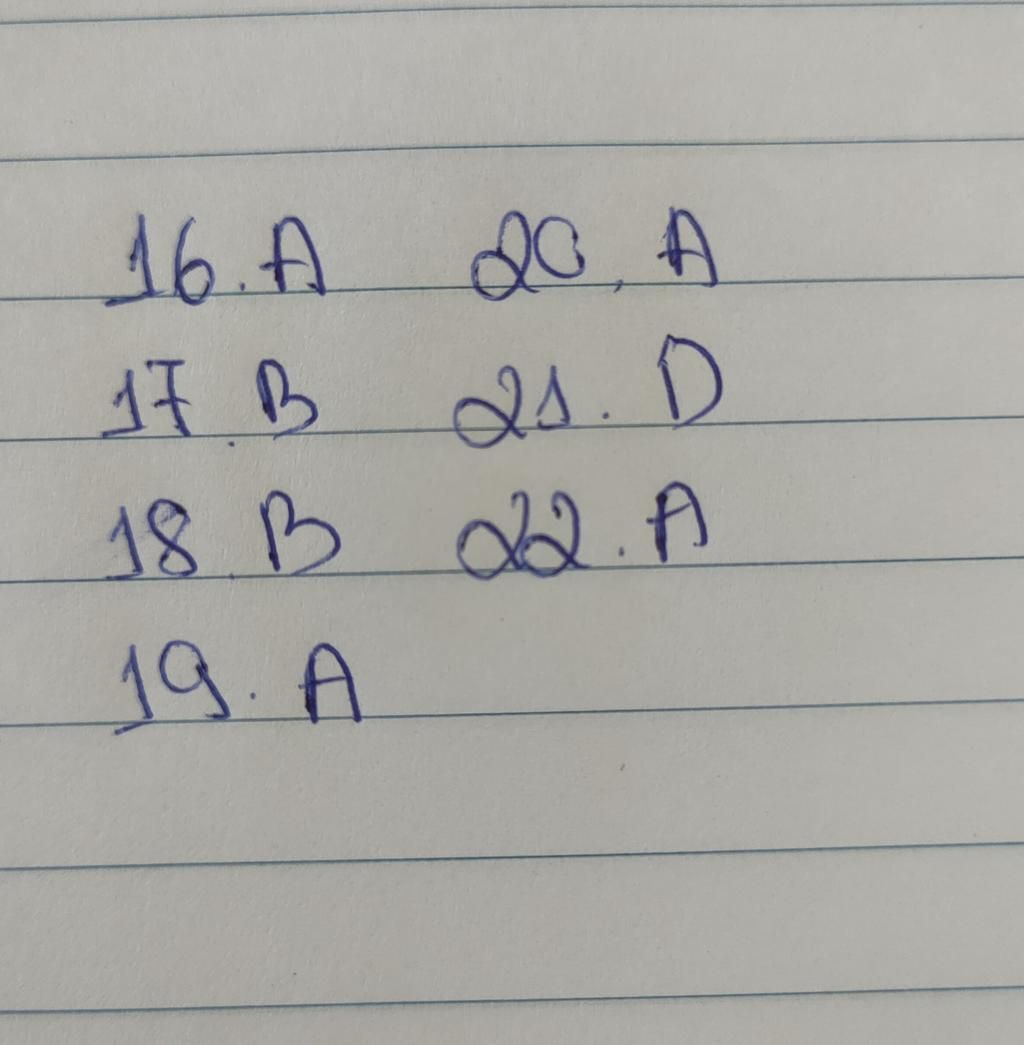 16. A 20. A
17. B 21. D
18. B 22. A
19. A